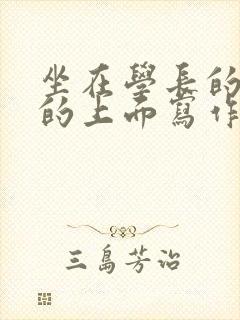 坐在學長的
的上而寫作
三島芳治